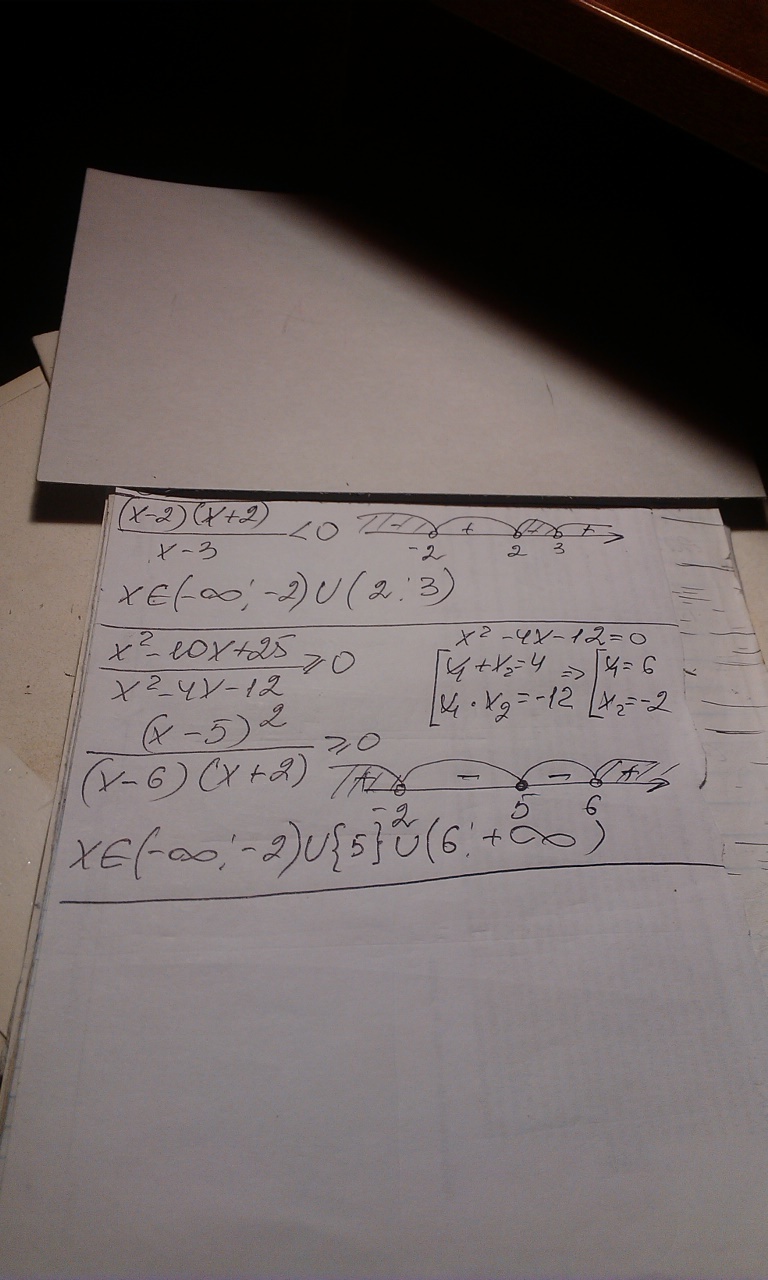 (x-2)(x+2)
/ x-3 <0
- + - +
-2 2 3
x∈(-∞; -2)∪(2; 3)
x²-10x+25
/ x²-4x-12 ⩾0
x²-4x-12=0
[x₁+x₂=4 => [x₁=6
[x₁·x₂=-12 [x₂=-2
(x-5)²
/ (x-6)(x+2) ⩾0
+ - - +
-2 5 6
x∈(-∞; -2)∪{5}∪(6; +∞)